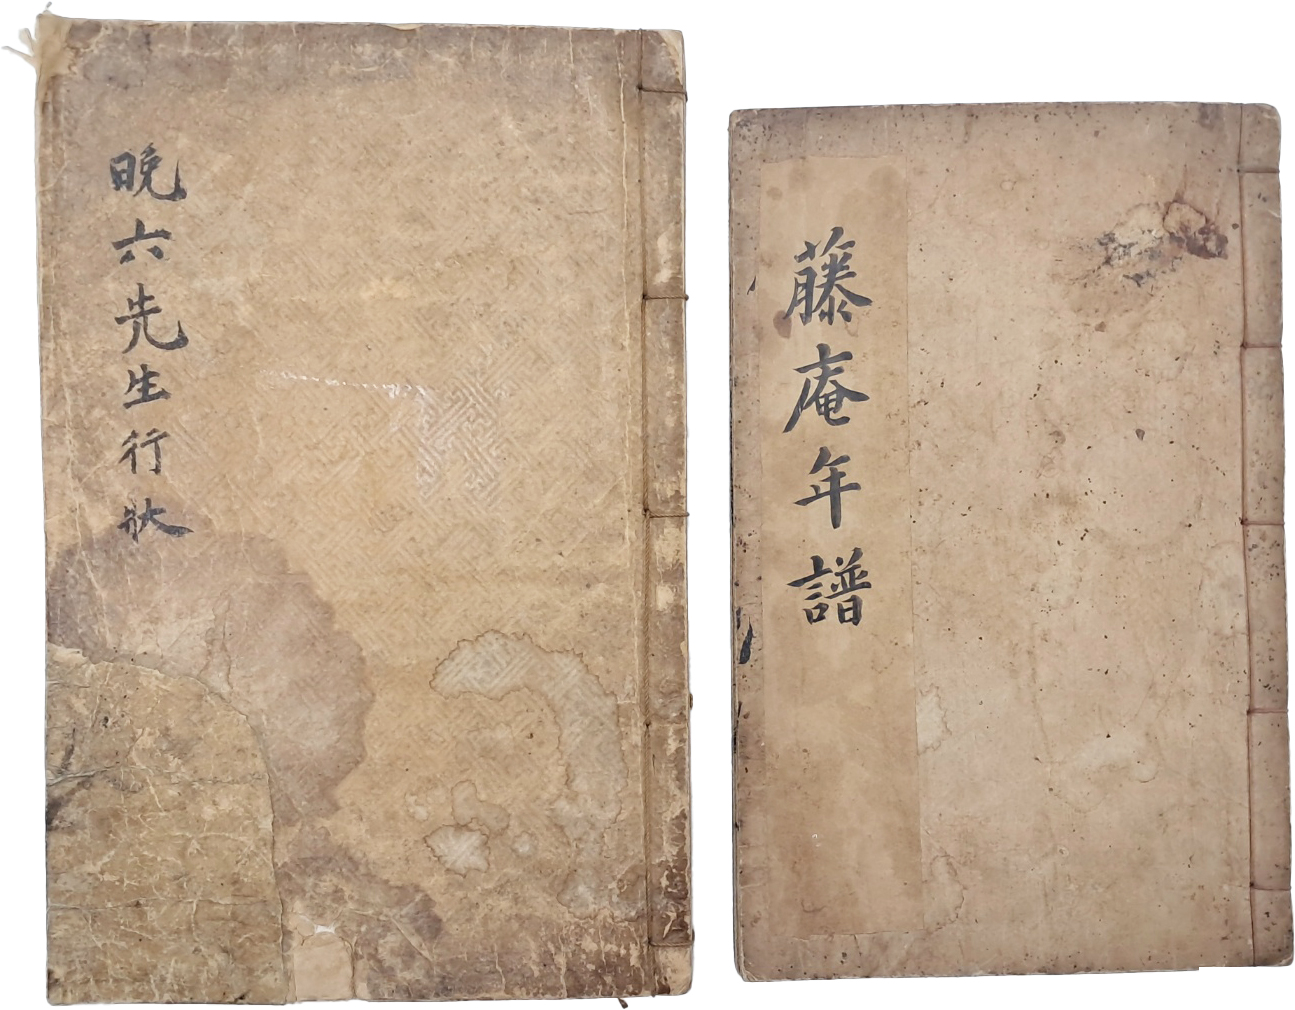 晩六先生行狀
藤庵年譜